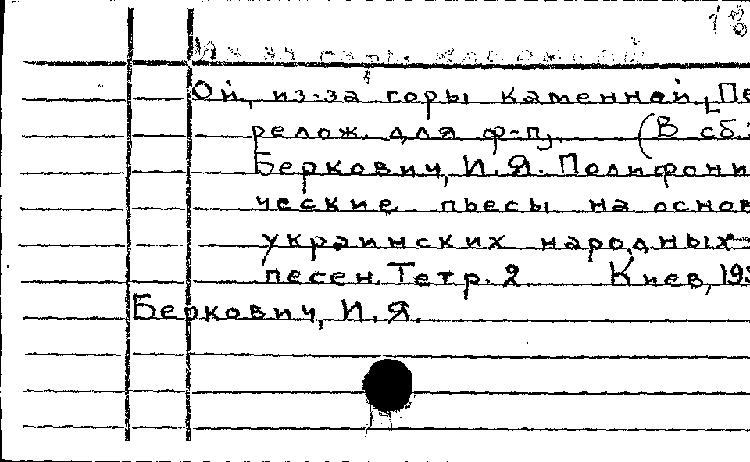 Ой, из-за горы каменной, [Пе
релож. для ф-п] (В сб.:
Беркович, И.Я. Полифони
ческие пьесы на основ
украинских народных
песен. Тетр. 2 Киев, 195
Беркович, И.Я.